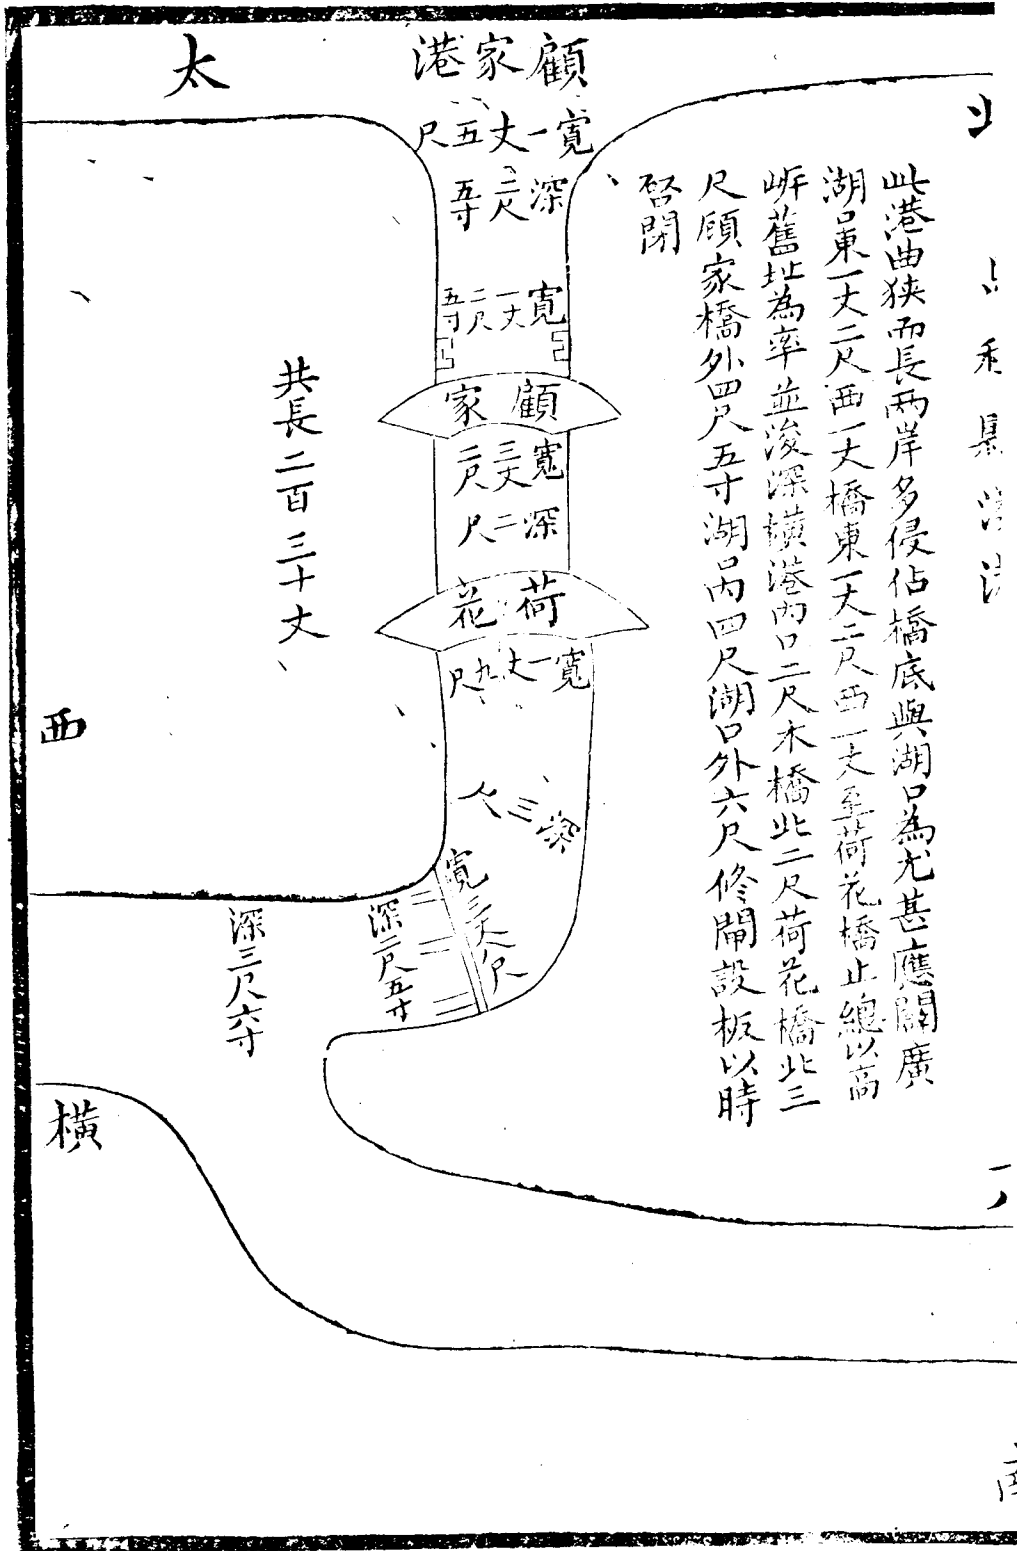 此港曲狭而長兩岸多侵佔橋底與湖口為尤甚應闢廣
湖口東一丈二尺西一丈橋東一丈二尺西一丈至荷花橋止總以高
岸舊址為率並浚深橫港內口二尺木橋北二尺荷花橋北三
尺顧家橋外四尺五寸湖口內四尺湖口外六尺修閘設板以時
啓閉
顧家港
寬一丈五尺
深二尺五寸
寬一丈二尺五寸
顧家
寬三丈二尺
深二尺
荷花
寬一丈九尺
深三尺
寬三丈八尺
深二尺五寸
深三尺六寸
共長二百三十丈
太
西
橫